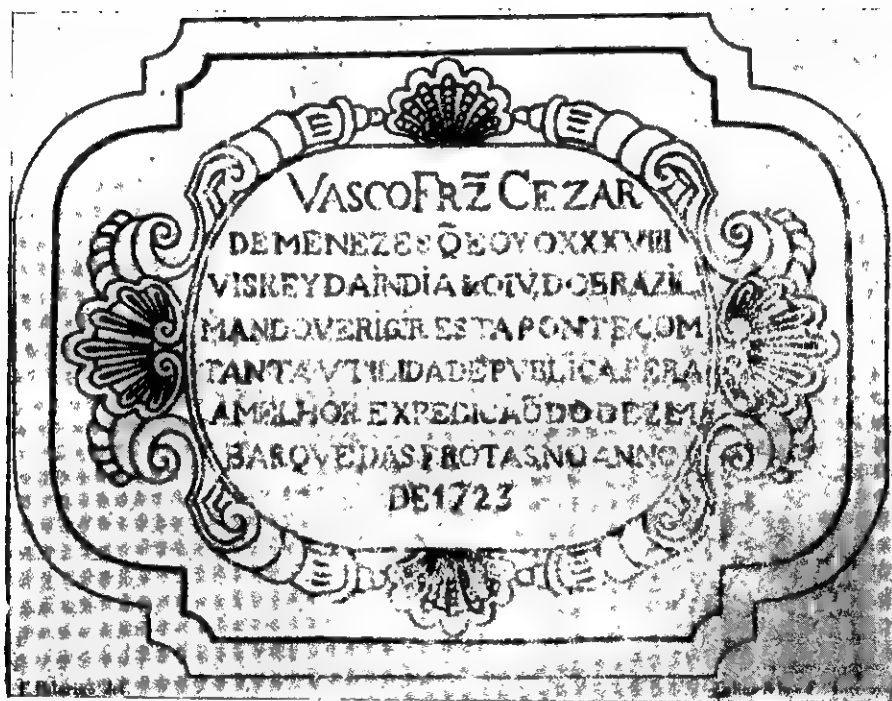 VASCO FRZ̃ CEZAR
DE MENEZES Q̃ E O VO XXXVIII
VISREY DA INDIA & O IV. DO BRAZIL
MANDOV ERIGIR ESTA PONTE COM
TANTA VTILIDADE PVBLICA PERA
A MELHOR EXPEDICAÕ DO DEZEM
BARQVE DAS FROTAS NO ANNO
DE 1723